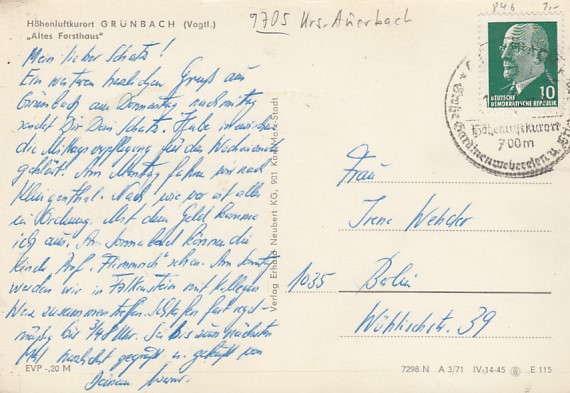 Höhenluftkurort GRÜNBACH (Vogtl.)
„Altes Forsthaus"
9705 Urs-Auerbach
Mein lieber Schatz!
Ein weiteren herzlichen Gruß aus
Grünbach am Donnerstag nachmittag
sendet Dir Dein Schatz. Habe inzwischen
die Mittagsverpflegung für das Wochenende
geklärt. Am Montag fahren wir nach
Klingenthal. Nach wie vor ist alles
in Ordnung. Mit dem Geld komme
ich aus. Am Sonnabend können die
Kinder Prof. „Flimmrich" sehen. Am Sonntag
werden wir in Falkenstein mit Kollegen
zusammentreffen. Schlafen fast regel-
mäßig bis 3/48 Uhr. Sei bis zum nächsten
Mal herzlichst gegrüßt u. geküßt von
Deinem
EVP -,20 M
Verlag Erhard Neubert KG, 901 Karl-Marx-Stadt
10
DEUTSCHE
DEMOKRATISCHE REPUBLIK
Höhenluftkurort
700m
Gardinenwebereien u.
Frau
Irene
1035 Berlin
Wühlischstr. 39
7298 N A 3/71 IV-14-45 E 115